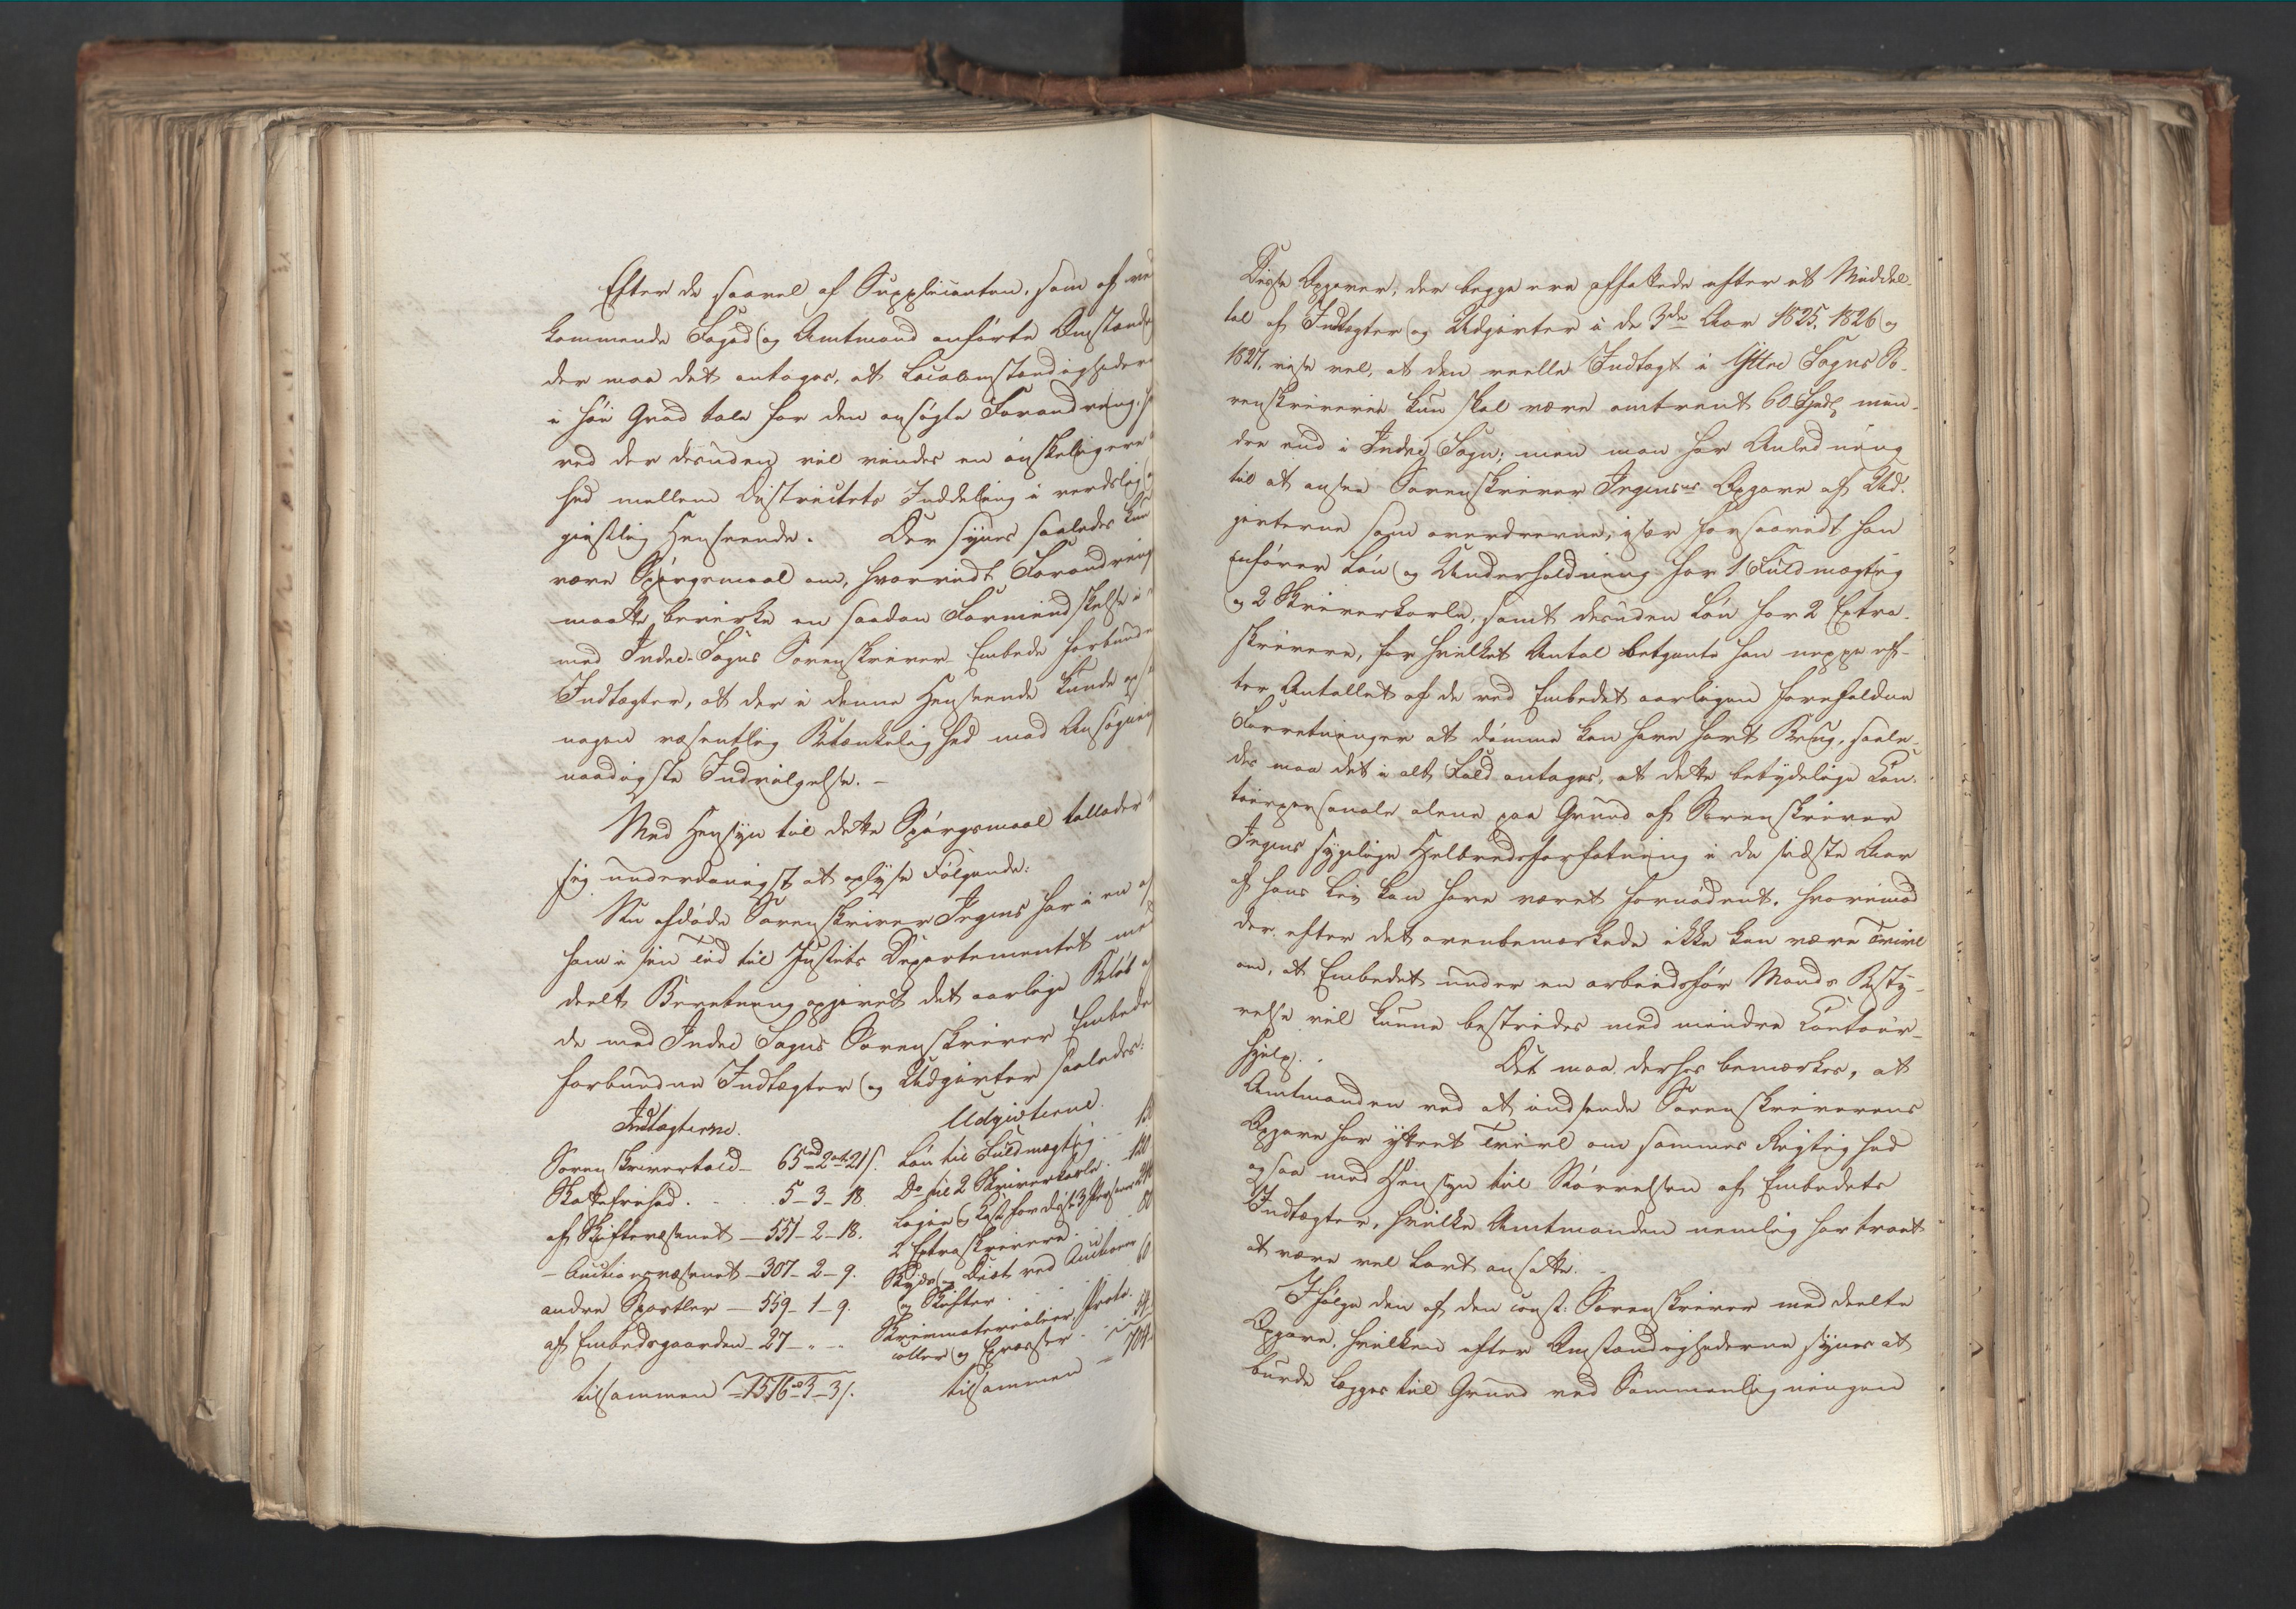 Efter de saavel af Supplicanten, som af ved
kommende Foged og Amtmand anførte Omstændig
der maa det antages, at Localomstændigheder
i høi Grad tale for den ansøgte Forandring,
ved der desuden vil vindes en ønskeligere
hed mellem Districtets Inddeling i verdslig og
geistlig Henseende. Der synes saaledes kun
være Spørgsmaal om, hvorvidt Forandring
maatte bevirke en saadan Formindskelse i
med Indre Sogns Sorenskriver-Embede forbundne
Indtægter, at der i denne Henseende kunde op
nogen væsentlig Betænkelighed mod Ansøgning
naadigste Indvilgelse. –
Med Hensyn til dette Spørgsmaal tillader
sig underdanigst at oplyse Følgende:
Nu afdøde Sorenskriver Irgens har i en af
ham i sin Tid til Justits Departementet med
deelt Beretning opgivet det aarlige Beløb af
de med Indre Sogns Sorenskriver Embede
forbundne Indtægter og Udgivter saaledes:
Indtægterne.
Udgivterne.
Sorenskrivertold – 65 – 2 – 21 s.
Løn til Fuldmægtig
Skattefrihed . . 5 – 3 – 18.
Do til 2 Skriverkarle . 120
af Skiftevæsenet – 551 – 2 – 18.
Logie og Kost for disse 3 Personer
– Auctionsvæsenet – 307 – 2 – 9.
2 Extraskrivere .
andre Sportler – 559 – 1 – 9.
Skyds og Diæt ved Auctioner
og Skifter .
af Embedsgaarden – 27 – " – "
Skrivmaterialier, Proto-
coller og Expresser
tilsammen – 1516 – 3 – 3 s.
tilsammen
Disse Opgaver, der begge ere affattede efter et Middel-
tal af Indtægter og Udgivter i de 3de Aar 1825, 1826 og
1827, vise vel, at den reelle Indtægt i Yttre Sogns So-
renskriverie kun skal være omtrent 60 Spd min-
dre end i Indre Sogn; men man har Anledning
til at ansee Sorenskriver Irgens's Opgave af Ud-
givterne som overdrevne, især forsaavidt han
anfører Løn og Underholdning for 1 Fuldmægtig
og 2 Skriverkarle, samt desuden Løn for 2 Extra-
skrivere, for hvilket Antal betjente han neppe ef-
ter Antallet af de ved Embedet aarligen forefaldne
Forretninger at dømme kan have havt Brug, saale-
des maa det i alt Fald antages, at dette betydelige Con-
toirpersonale alene paa Grund af Sorenskriver
Irgens sygelige Helbredsforfatning i de sidste Aar
af hans Liv kan have været fornødent, hvorimod
der efter det ovenbemærkede ikke kan være Tvivl
om, at Embedet under en arbeidsfør Mands Besty-
relse vil kunne bestrides med mindre Contoir-
hjelp. . Det maa derhos bemærkes, at
Amtmanden ved at indsende Sorenskriverens
Opgave har yttret Tvivl om sammes Rigtighed
ogsaa med Hensyn til Størrelsen af Embedets
Indtægter, hvilke Amtmanden nemlig har troet
at være vel lavt ansatte.
Ifølge den af den const: Sorenskriver meddeelte
Opgave, hvilken efter Omstændighederne synes at
burde lægges til Grund ved Sammenligningen